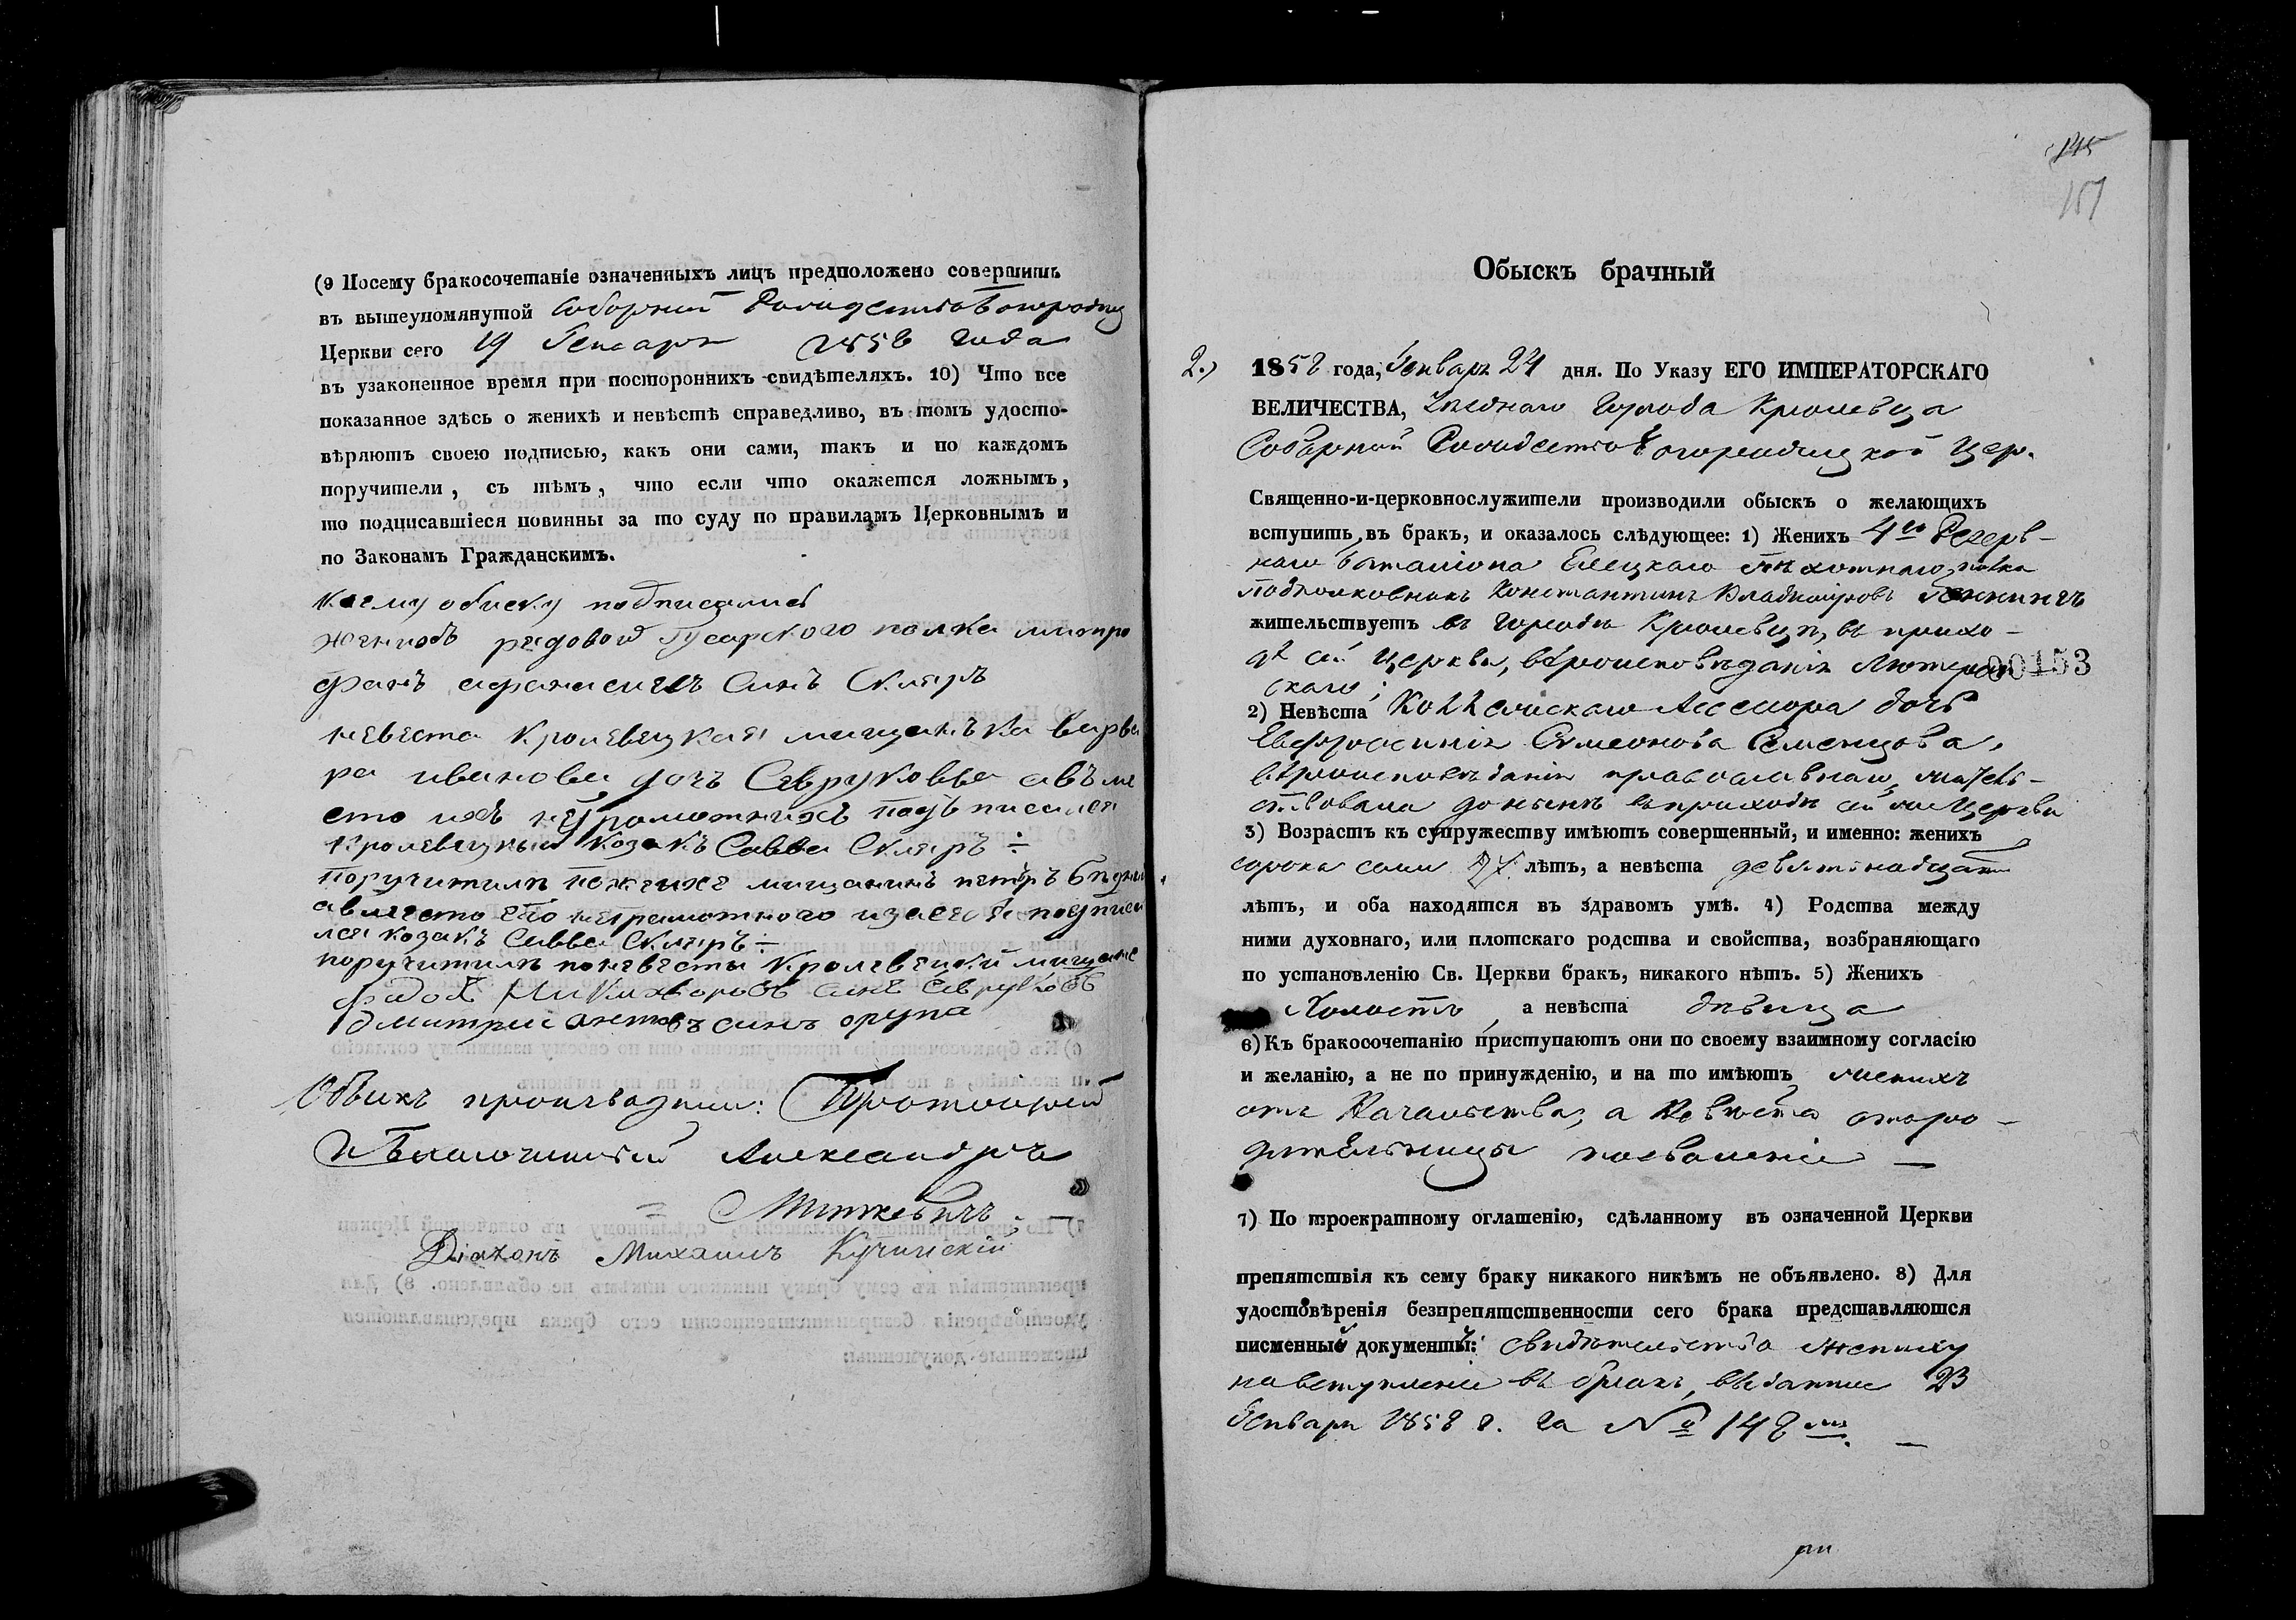 (9 Посему бракосочетаніе означенныхъ лицъ предположено совершить
въ вышеупомянутой Соборній Рождество Богородиц
Церкви сего 19 Генваря 1858 года
въ узаконенное время при постороннихъ свидѣтеляхъ. 10) Что все
показанное здѣсь о женихѣ и невѣстѣ справедливо, въ томъ удосто-
вѣряютъ своею подписью, какъ они сами, такъ и по каждомъ
поручители, съ тѣмъ, что если что окажется ложнымъ,
то подписавшіеся повинны за то суду по правиламъ Церковнымъ и
по Законамъ Гражданскимъ.
К сему обиску подписались
женихъ рядовой Гусарского полка митро
фанъ афанасиевъ синъ Скляръ
невеста Кролевецкая мищанъка варва
ра иванова дочъ Савруковва авъме
сто ихъ неграмотнихъ подъписался
Кролевецкий козакъ Савва Скляръ ÷
поручители пожениху мищанинъ петръ
авместо его неграмотного
лся козакъ Савва Скляръ ÷
поручитиль поневести Кролевецкий мищане
синъ Савруковъ
дмитрий синъ
Обыскъ производили: Протоіерей
Александръ
Миткевичъ.
Діаконъ Михаилъ Кучинскій
145
151
Обыскъ брачный
2.) 1858 года, Январь 24 дня. По Указу ЕГО ИМПЕРАТОРСКАГО
ВЕЛИЧЕСТВА, уѣзднаго города Кролевца
Соборной Рождество Богородицкой цер.
Священно-и-церковнослужители производили обыскъ о желающихъ
вступить въ бракъ, и оказалось слѣдующее: 1) Женихъ 4го Резерв-
наго баталіона Елецкаго пѣхотнаго полка
подполковникъ Константинъ Владиміровъ
жительствуетъ въ городѣ Кролевцѣ, въ прихо-
дѣ сей церкви, вѣроисповѣданія Лютеран
скаго;
00153
2) Невѣста Коллежскаго Ассесора дочь
Евфросинія Симеонова Семенцова,
вѣроисповѣданія православнаго, житель-
ствовала донынѣ въ приходѣ сей же церкви
3) Возрастъ къ супружеству имѣютъ совершенный, и именно: женихъ
сорока семи 47. лѣтъ, а невѣста девятнадцати
лѣтъ, и оба находятся въ здравомъ умѣ. 4) Родства между
ними духовнаго, или плотскаго родства и свойства, возбраняющаго
по установленію Св. Церкви бракъ, никакого нѣтъ. 5) Женихъ
Холостъ, а невѣста дѣвица
6) Къ бракосочетанію приступаютъ они по своему взаимному согласію
и желанію, а не по принужденію, и на то имѣютъ женихъ
отъ Начальства, а Невѣста отъ ро-
дительницы позволеніе —
7) По троекратному оглашенію, сдѣланному въ означенной Церкви
препятствія къ сему браку никакого никѣмъ не объявлено. 8) Для
удостовѣренія безпрепятственности сего брака представляются
писменные документы: свидѣтельство жениху
на вступленіе въ бракъ, выданное 23
Января 1858 г. за № 148 мъ. —